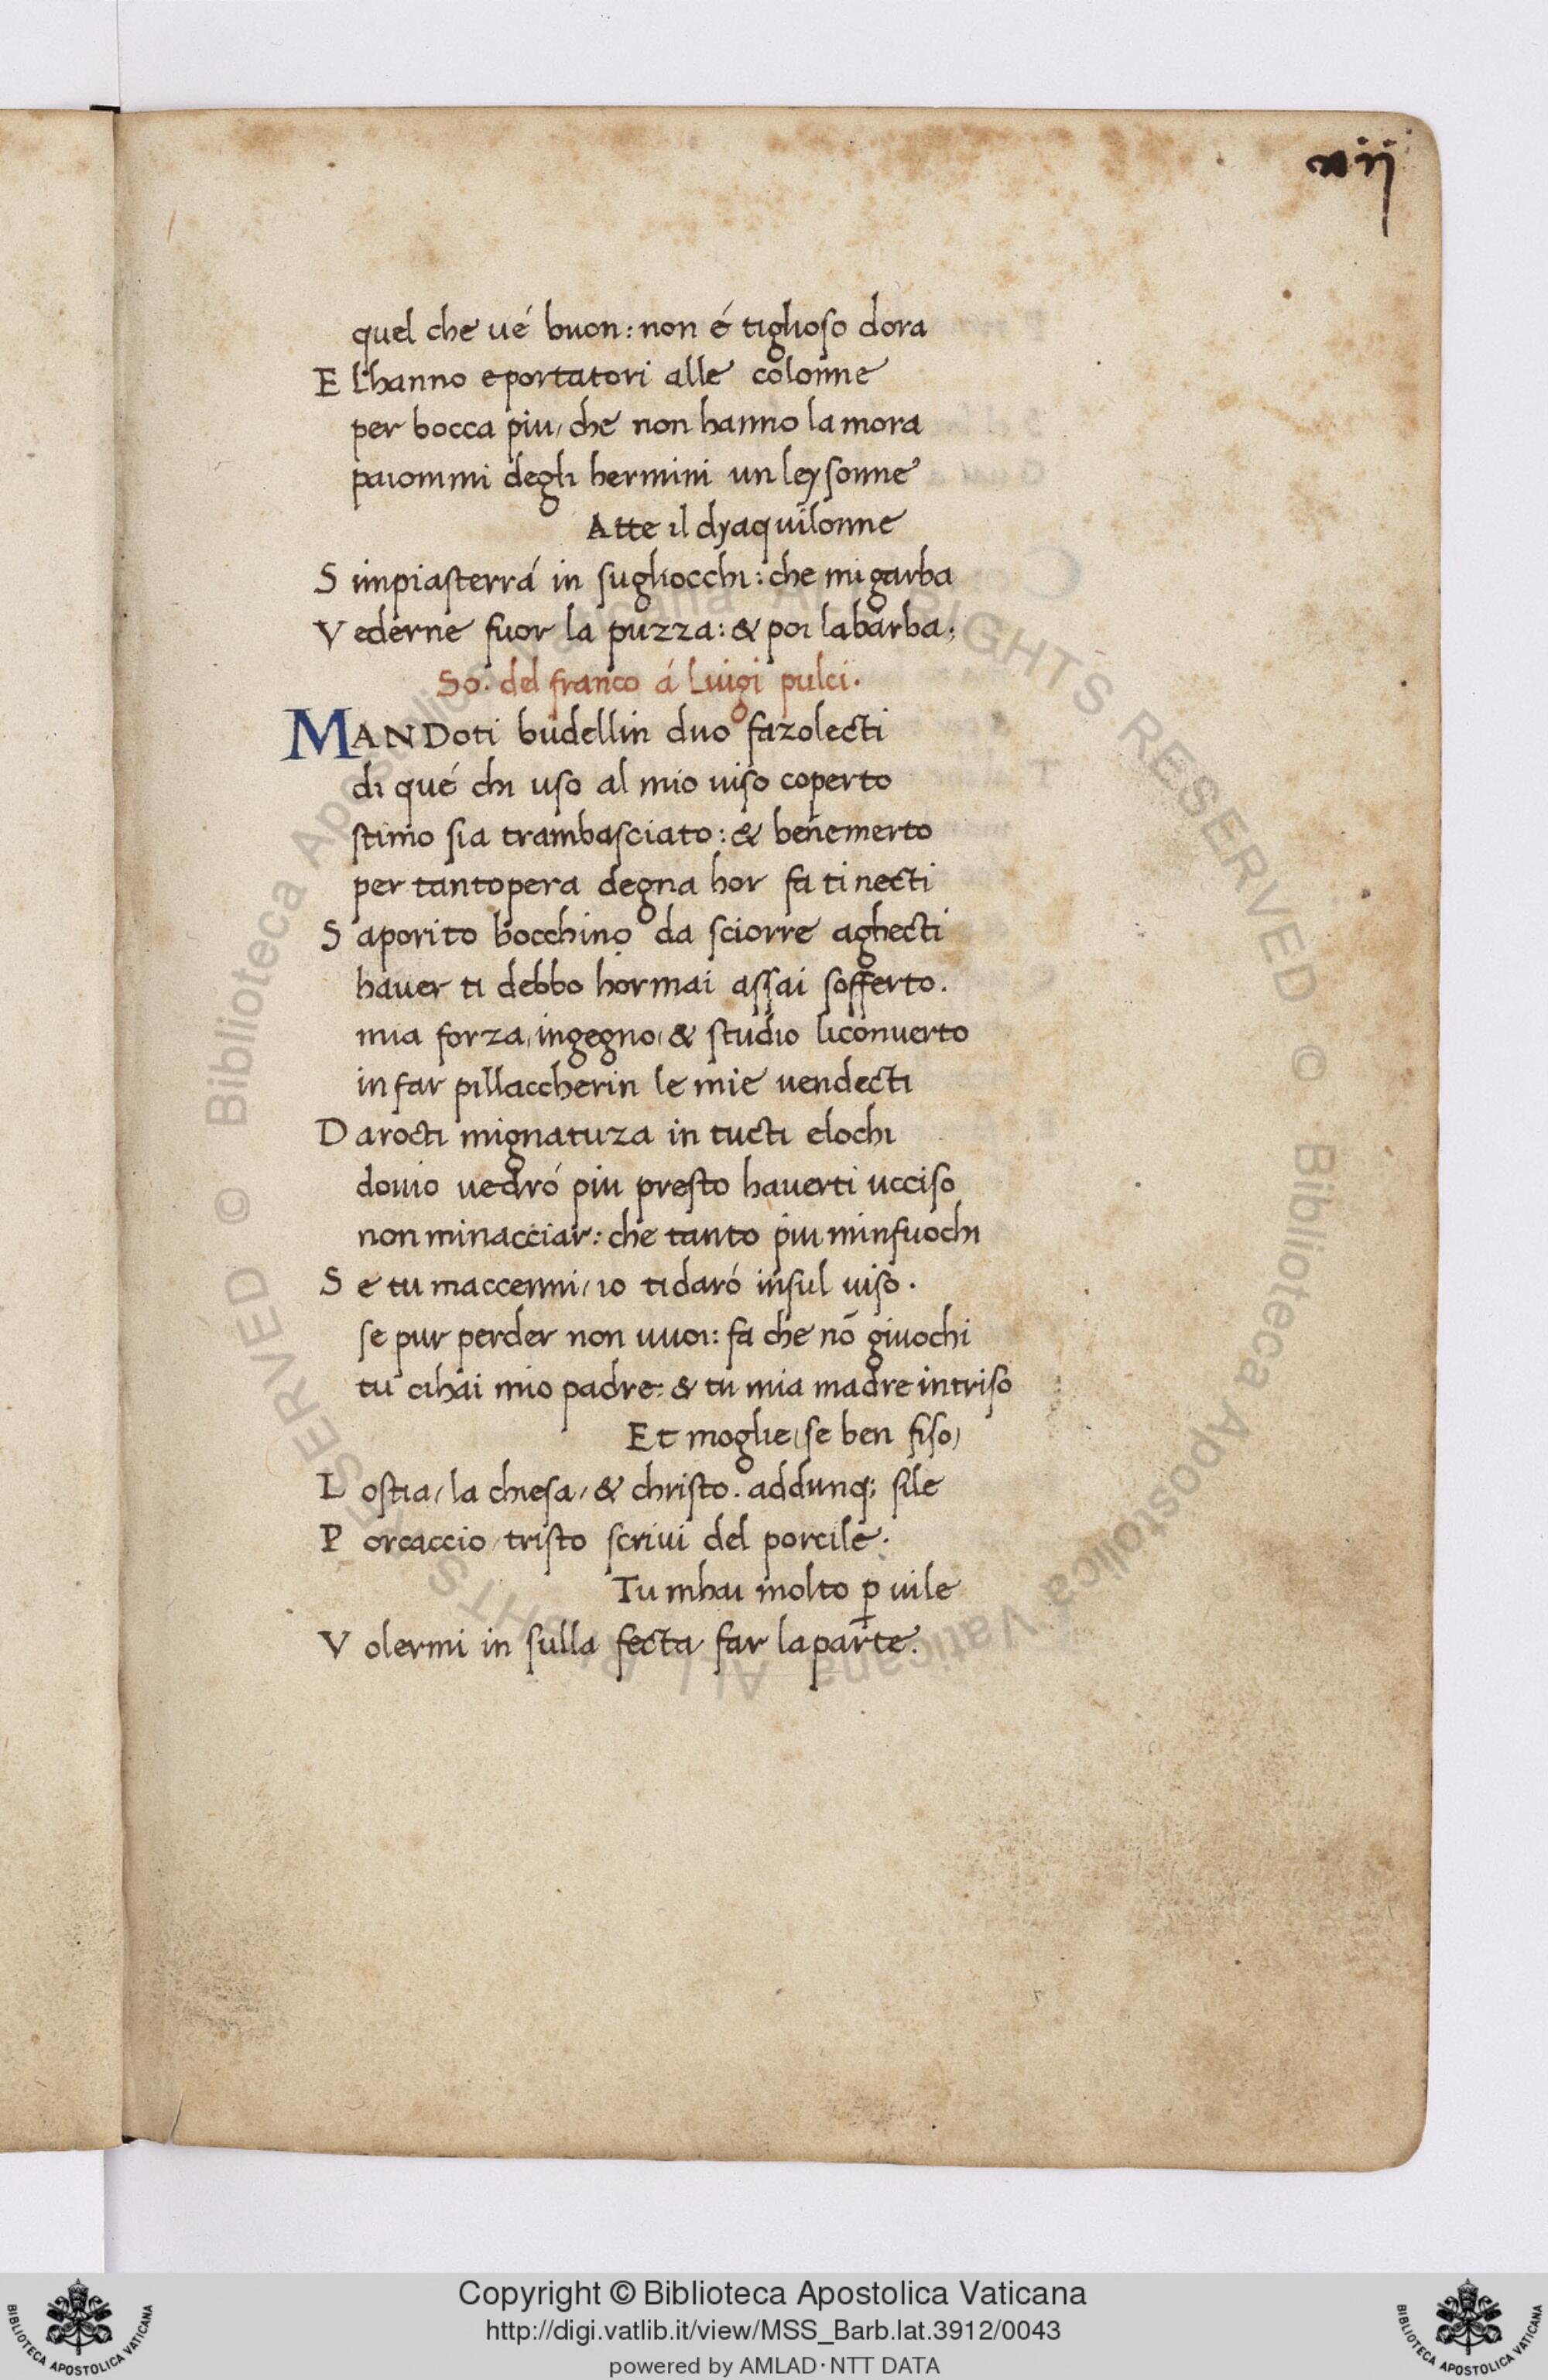 xij
quel che ué buon: non é tiglioso dora
E lhanno eportatori alle colonne
per bocca piu, che non hanno la mora
paiommi degli hermini un leysonne
Atte il dyaquilonne
S impiasterrá in sugliocchi: che mi garba
V ederne fuor la puzza: & poi la barba;
So. del franco á Luigi pulci.
MANDoti budellin duo fazolecti
di qué chi uso al mio uiso coperto
stimo sia trambasciato: & benemerto
per tantopera degna hor fa ti necti
S aporito bocchino da sciorre aghecti
hauer ti debbo hormai assai sofferto.
mia forza, ingegno, & studio liconuerto
in far pillaccherin le mie uendecti
D arocti mignatuza in tucti elochi
douio uedró piu presto hauerti ucciso
non minacciar: che tanto piu minfuochi
S e tu maccenni, io tidaró insul uiso.
se pur perder non uuoi: fa che nō giuochi
tu cihai mio padre: & tu mia madre intriso
Et moglie, se ben fiso,
L ostia, la chiesa, & christo. addunq; sile
P orcaccio, tristo scriui del porcile.
Tu mhai molto ꝑ uile
V olermi in sulla fecta far laparte.
© Biblioteca Apostolica Vaticana ALL RIGHTS RESERVED © Biblioteca Apostolica Vaticana ALL RIGHTS RESERVED
Copyright © Biblioteca Apostolica Vaticana
http://digi.vatlib.it/view/MSS_Barb.lat.3912/0043
powered by AMLAD·NTT DATA
BIBLIOTECA APOSTOLICA VATICANA
BIBLIOTECA APOSTOLICA VATICANA